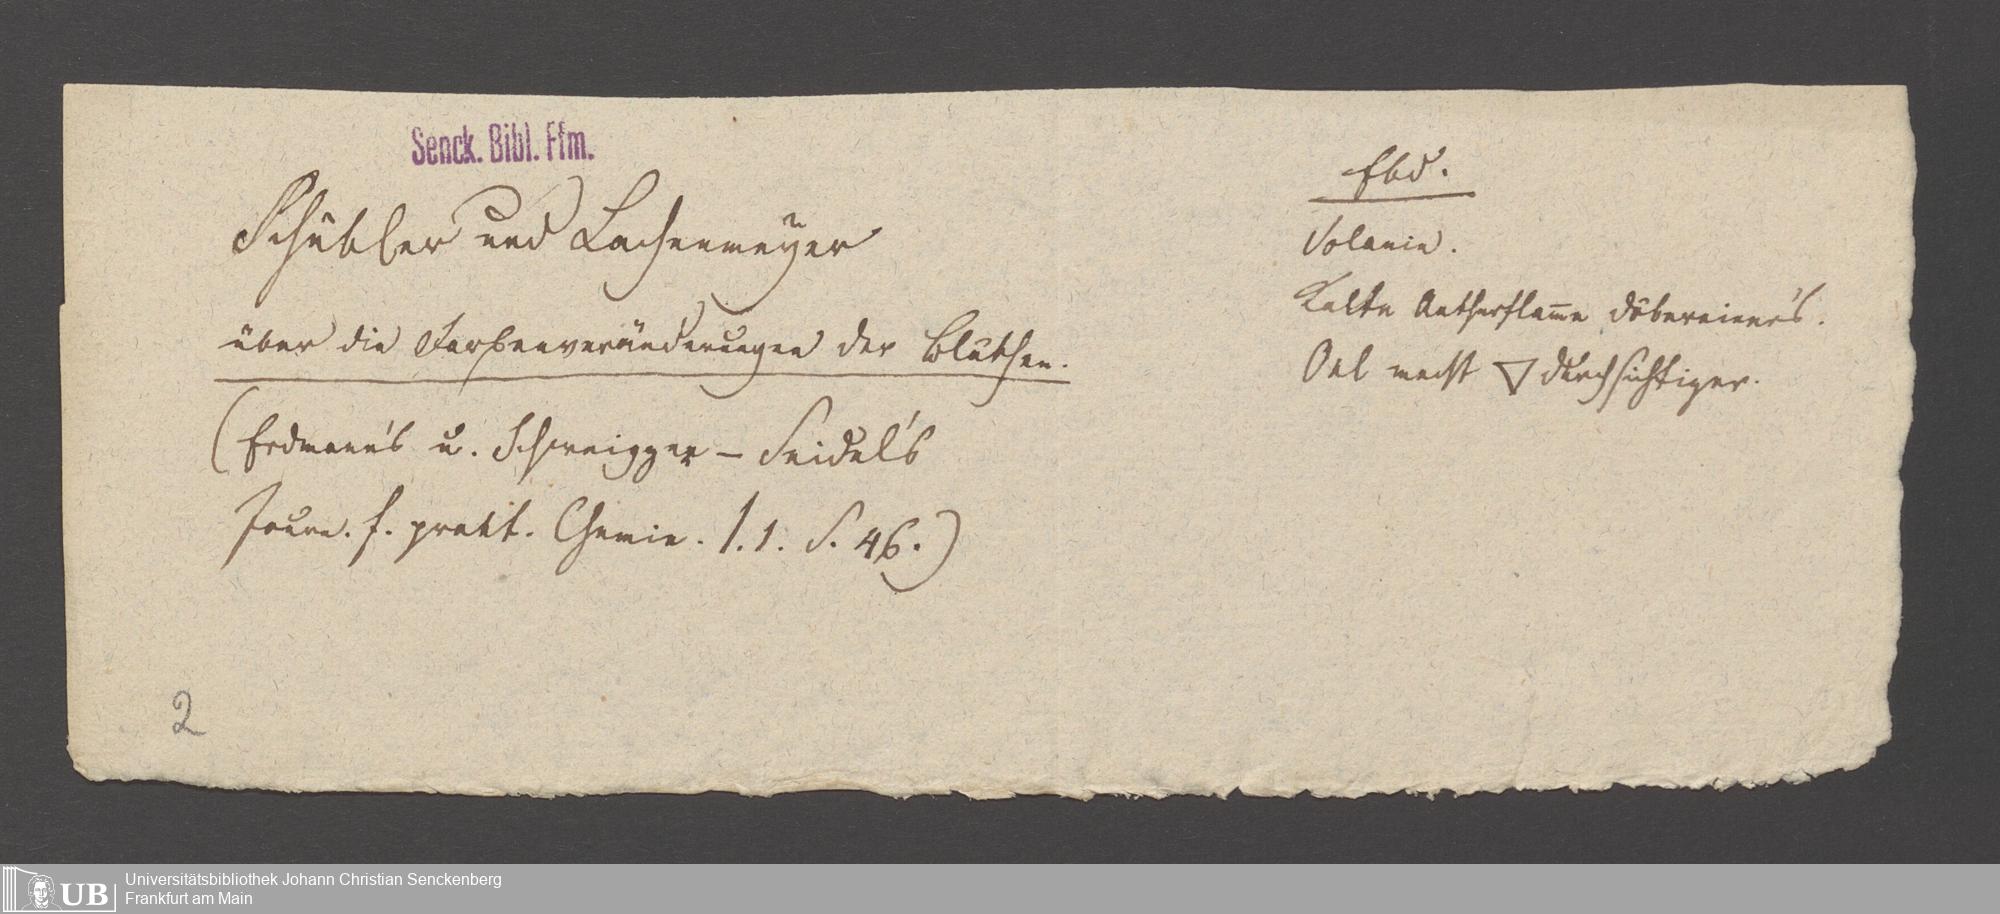 Senck. Bibl. Ffm.
Schübler und Lachenmeyer
über die Farbenveränderungen der Blüthen.
(Erdmann's u. Schweigger-Seidel's
Journ. f. prakt. Chemie. 1.1. S. 46.)
2
Ebd.
Solanin.
Kalte Aetherflam̅e Döbereiners.
Oel macht ▽ durchsichtiger.
UB
Universitätsbibliothek Johann Christian Senckenberg
Frankfurt am Main